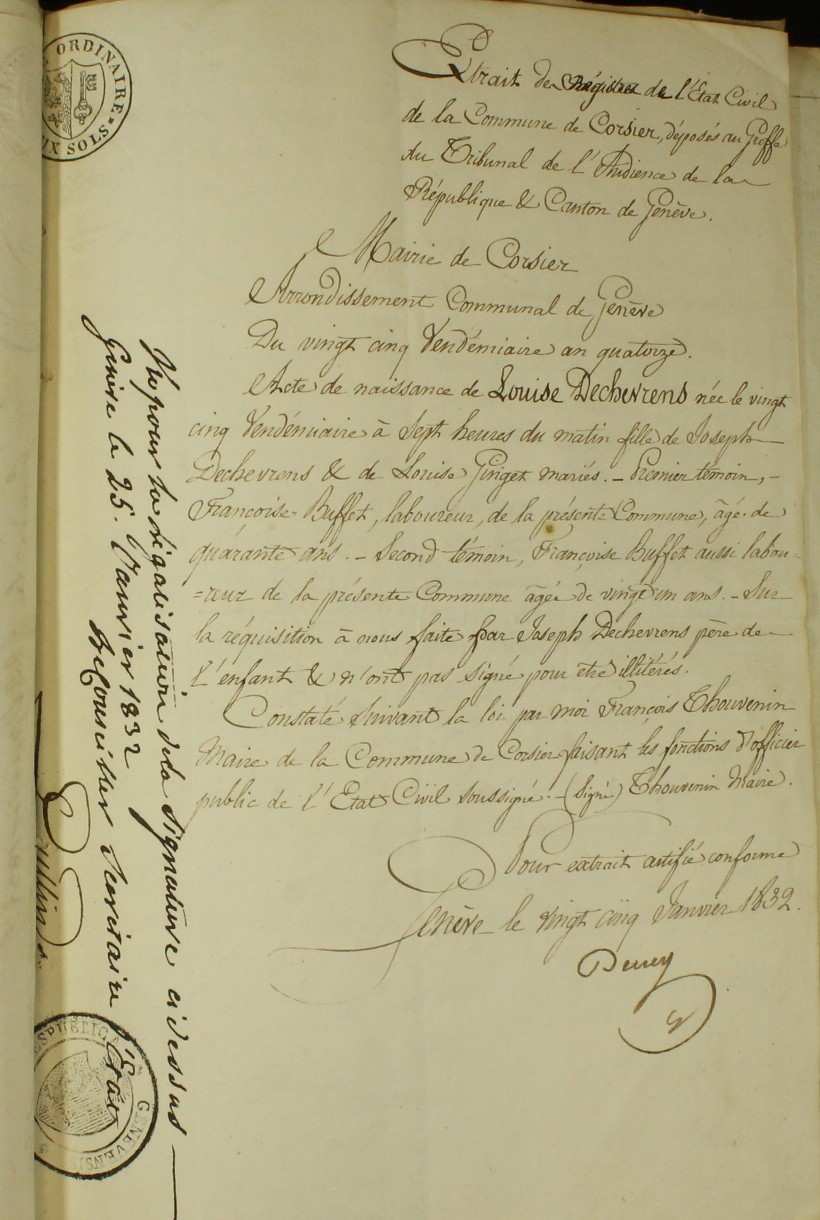 ORDINAIRE
IX SOLS
Extrait des Régistres de l'Etat Civil
de la Commune de Corsier, déposés au Greffe
du Tribunal de l'Audience de la
République & Canton de Genève.
Mairie de Corsier
Arrondissement Communal de Genève
Du vingt cinq Vendémiaire an quatorze.
Acte de naissance de Louise Dechevrens née le vingt
cinq Vendémiaire à Sept heures du matin fille de Joseph
Dechevrens & de Louise Ginget mariés. - Premier témoin, -
Françoise Buffet, laboureur, de la présente Commune, âgé de
quarante ans. - Second témoin, Françoise Buffet aussi labou-
=reur de la présente Commune âgée de vingt un ans. - Sur
la réquisition à nous faite par Joseph Dechevrens père de
l'enfant & n'ont pas signé pour etre illitérés.
Constaté Suivant la loi par moi François Thouvenin
Maire de la Commune de Corsier faisant les fonctions d'officier
public de l'Etat Civil soussigné. - (Signé) Thouvenin Maire.
Pour extrait certifié conforme
Genève le vingt cinq Janvier 1832.
Vu pour la légalisation de la Signature ci dessus
Genève le 25. Janvier 1832
Le Conseiller Secretaire d'Etat
ESPUBLICA
GENEVENS